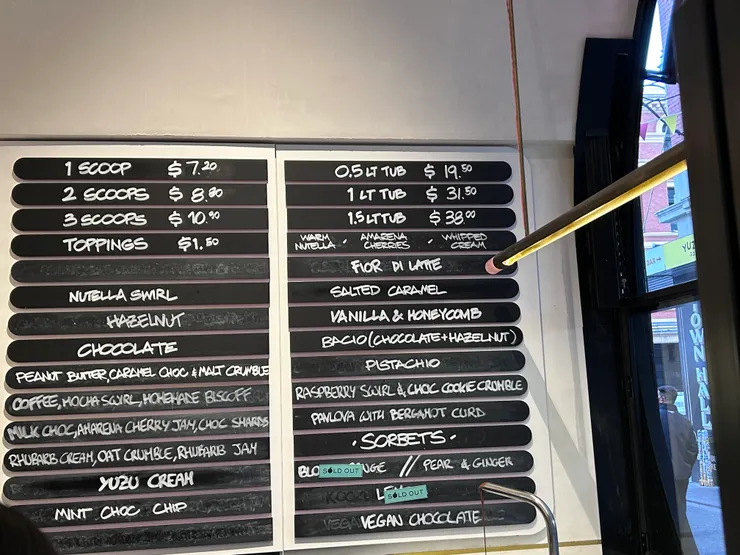 1 SCOOP $7.20
2 SCOOPS $8.80
3 SCOOPS $10.90
TOPPINGS $1.50
NUTELLA SWIRL
HAZELNUT
CHOCOLATE
PEANUT BUTTER, CARAMEL CHOC & MALT CRUMBLE
COFFEE, MOCHA SWIRL, HOMEMADE BISCOFF
MILK CHOC, AMARENA CHERRY JAM, CHOC SHARDS
RHUBARB CREAM, OAT CRUMBLE, RHUBARB JAM
YUZU CREAM
MINT CHOC CHIP
0.5 LT TUB $19.50
1 LT TUB $31.50
1.5 LT TUB $38.00
WARM NUTELLA · AMARENA CHERRIES · WHIPPED CREAM
FIOR DI LATTE
SALTED CARAMEL
VANILLA & HONEYCOMB
BACIO (CHOCOLATE + HAZELNUT)
PISTACHIO
RASPBERRY SWIRL & CHOC COOKIE CRUMBLE
PAVLOVA WITH BERGAMOT CURD
· SORBETS ·
BLO SOLD OUT NGE // PEAR & GINGER
LE SOLD OUT
VEGAN CHOCOLATE
YUZ
TOWN HALL